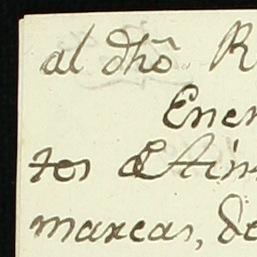 al dhō R
Ener
tos
marcas, de